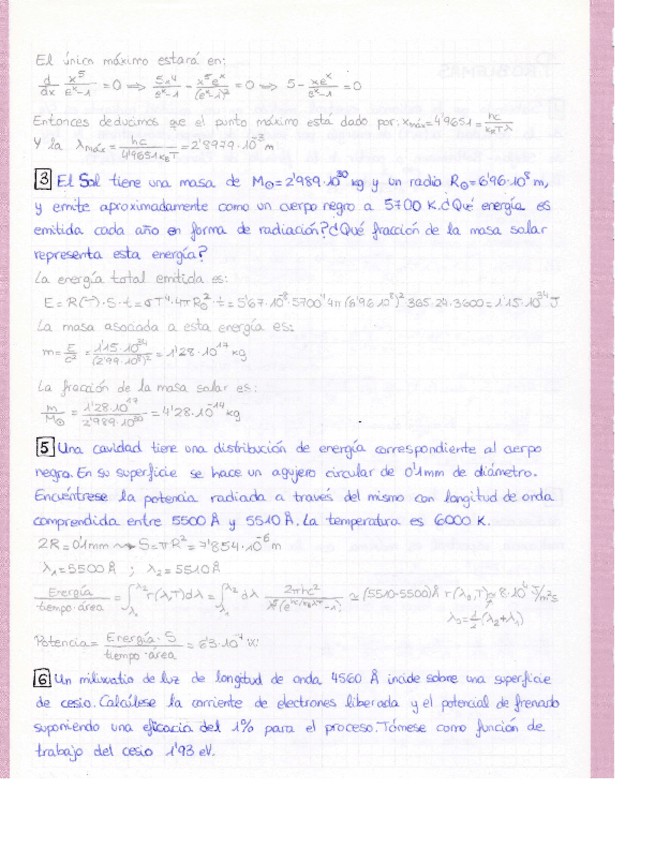 El único máximo estará en:
d/dx x⁵/(eˣ-1) = 0 ⟹ 5x⁴/(eˣ-1) - x⁵eˣ/(eˣ-1)² = 0 ⟹ 5 - xeˣ/(eˣ-1) = 0
Entonces deducimos que el punto máximo está dado por: xmáx = 4'9651 = hc/(k_BTλ)
Y la λmáx = hc/(4'9651k_BT) = 2'8979·10⁻³ m
3 El Sol tiene una masa de M⊙=2'989·10³⁰ kg y un radio R⊙=6'96·10⁸ m,
y emite aproximadamente como un cuerpo negro a 5700 K. ¿Qué energía es
emitida cada año en forma de radiación? ¿Qué fracción de la masa solar
representa esta energía?
La energía total emitida es:
E = R(T)·S·t = σT⁴·4πR⊙²·t = 5'67·10⁻⁸·5700⁴·4π(6'96·10⁸)²·365·24·3600 = 1'15·10³⁴ J
La masa asociada a esta energía es:
m = E/c² = 1'15·10³⁴/(2'99·10⁸)² = 1'28·10¹⁷ kg
La fracción de la masa solar es:
m/M⊙ = 1'28·10¹⁷/2'989·10³⁰ = 4'28·10⁻¹⁴ kg
5 Una cavidad tiene una distribución de energía correspondiente al cuerpo
negro. En su superficie se hace un agujero circular de 0'1mm de diámetro.
Encuéntrese la potencia radiada a través del mismo con longitud de onda
comprendida entre 5500 Å y 5510 Å. La temperatura es 6000 K.
2R = 0'1mm ⇝ S = πR² = 7'854·10⁻⁶ m
λ₁ = 5500 Å ; λ₂ = 5510 Å
Energía/(tiempo·área) = ∫λ₁^λ₂ r(λ,T)dλ = ∫λ₁^λ₂ dλ 2πhc²/(λ⁵(e^(hc/k_BλT)-1)) ≃ (5510-5500)Å r(λ₀,T) ≃ 8·10⁴ J/m²s
λ₀ = ½(λ₂+λ₁)
Potencia = Energía·S/(tiempo·área) = 6'3·10⁻⁴ W
6 Un miliwatio de luz de longitud de onda 4560 Å incide sobre una superficie
de cesio. Calcúlese la corriente de electrones liberada y el potencial de frenado
suponiendo una eficacia del 1% para el proceso. Tómese como función de
trabajo del cesio 1'93 eV.